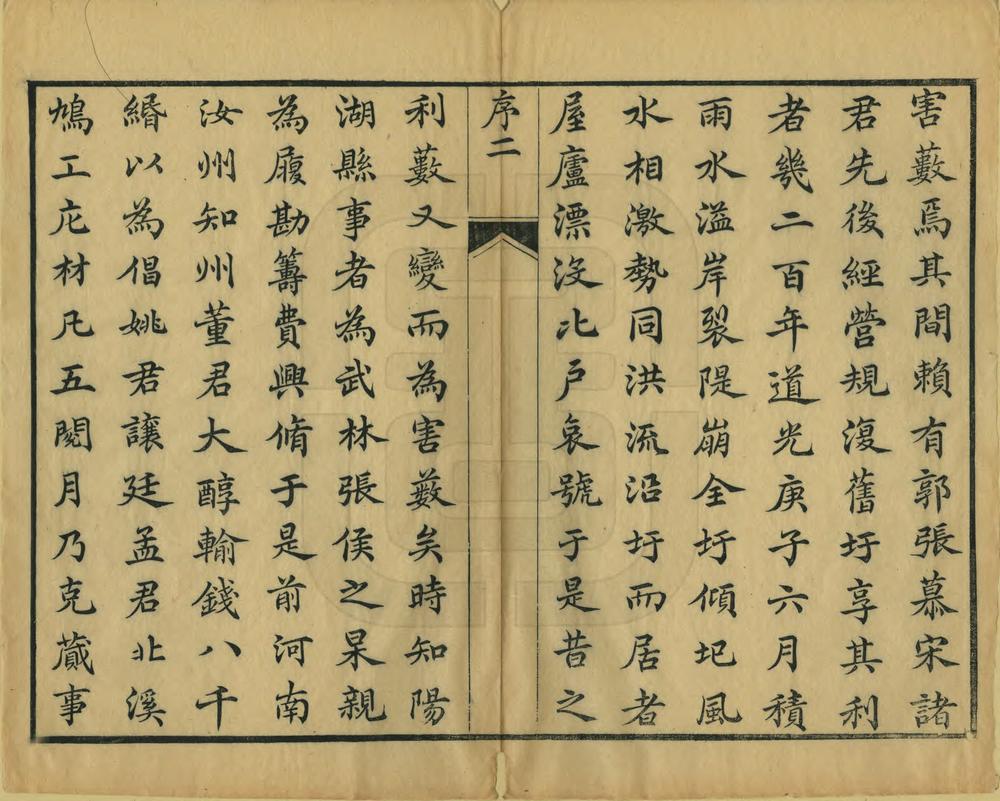 害藪焉其間賴有郭張慕宋諸
君先後經營規復舊圩享其利
者幾二百年道光庚子六月積
雨水溢岸裂隄崩全圩傾圯風
水相激勢同洪流沿圩而居者
屋廬漂沒比戶哀號于是昔之
序二
利藪又變而為害藪矣時知陽
湖縣事者為武林張侯之杲親
為履勘籌費興脩于是前河南
汝州知州董君大醇輸錢八千
緡以為倡姚君讓廷孟君北溪
鳩工庀材凡五閱月乃克蕆事